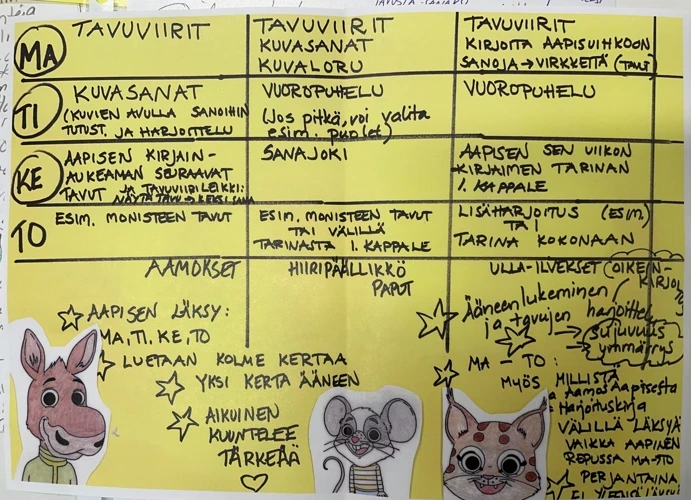 MA
TAVUVIIRIT
TAVUVIIRIT
KUVASANAT
KUVALORU
TAVUVIIRIT
KIRJOITA AAPISVIHKOON
SANOJA → VIRKKEITÄ (TAVUT)
TI
KUVASANAT
(KUVIEN AVULLA SANOIHIN
TUTUST. JA HARJOITTELU
VUOROPUHELU
(Jos pitkä, voi valita
esim. puolet)
VUOROPUHELU
KE
AAPISEN KIRJAIN-
AUKEAMAN SEURAAVAT
TAVUT JA TAVUVIIRILEIKKI:
NÄYTÄ TAVU → KEKSI SANA
SANAJOKI
AAPISEN SEN VIIKON
KIRJAIMEN TARINAN
1. KAPPALE
TO
ESIM. MONISTEEN TAVUT
ESIM. MONISTEEN TAVUT
TAI VÄLILLÄ
TARINASTA 1. KAPPALE
LISÄHARJOITUS (ESIM.)
TAI
TARINA KOKONAAN
AAMOKSET
HIIRIPÄÄLLIKKÖ
PAPUT
ULLA-ILVEKSET
OIKEIN-
KIRJOI
AAPISEN LÄKSY:
MA, TI, KE, TO
LUETAAN KOLME KERTAA
YKSI KERTA ÄÄNEEN
AIKUINEN
KUUNTELEE
TÄRKEÄÄ
Ääneenlukeminen
ja tavujen harjoittelu
→ sujuvuus
ymmärrys
MA - TO:
MYÖS MILLISTÄ
Aamos Aapisesta
Harjoituskirja
VÄLILLÄ LÄKSYÄ
VAIKKA AAPINEN
REPUSSA MA-TO
PERJANTAINA
EI